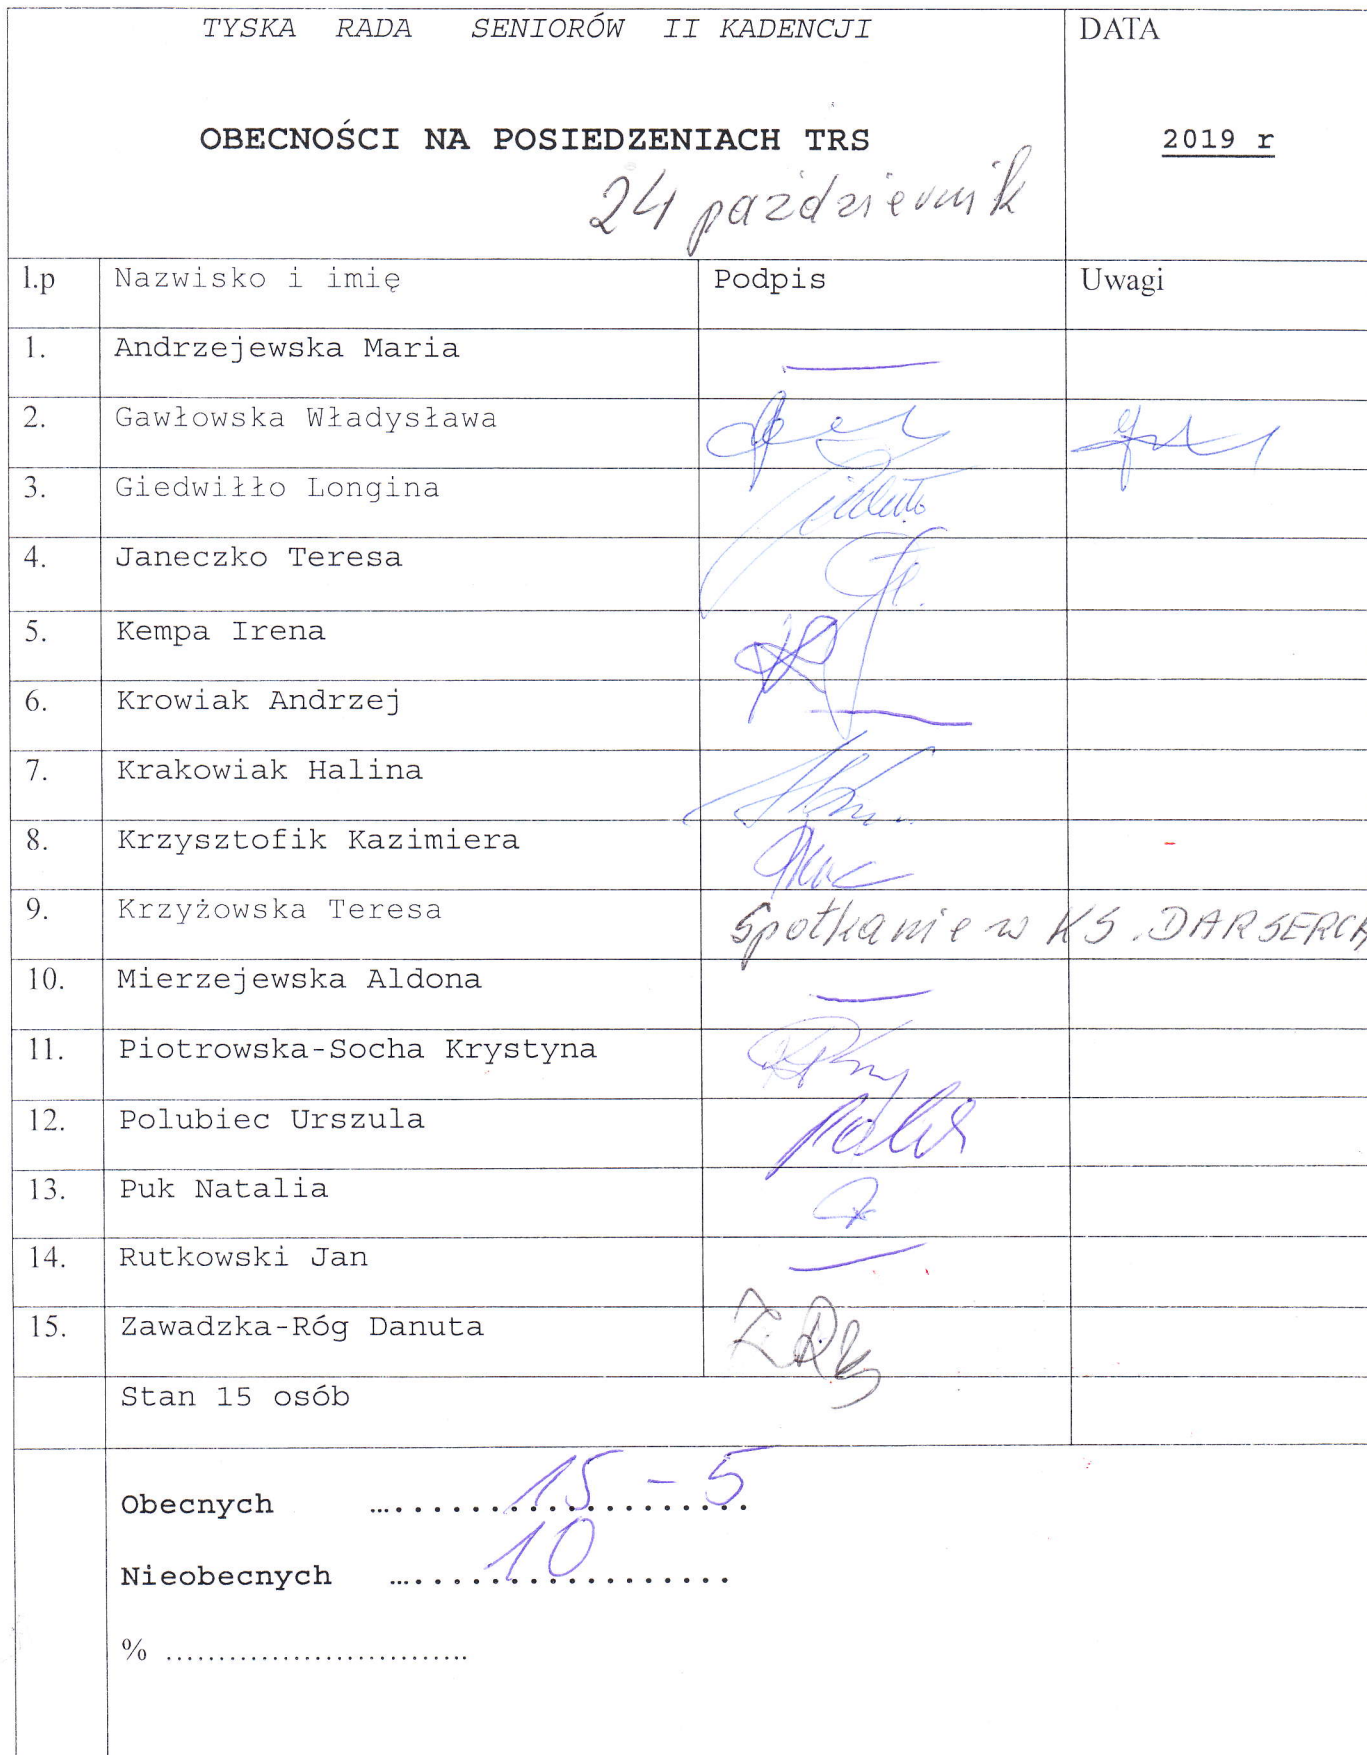 TYSKA RADA SENIORÓW II KADENCJI
DATA
OBECNOŚCI NA POSIEDZENIACH TRS
2019 r
24 październik
l.p Nazwisko i imię Podpis Uwagi
1. Andrzejewska Maria —
2. Gawłowska Władysława
3. Giedwiłło Longina
4. Janeczko Teresa
5. Kempa Irena
6. Krowiak Andrzej —
7. Krakowiak Halina
8. Krzysztofik Kazimiera -
9. Krzyżowska Teresa Spotkanie w KS. DAR SERCA
10. Mierzejewska Aldona —
11. Piotrowska-Socha Krystyna
12. Polubiec Urszula
13. Puk Natalia
14. Rutkowski Jan —
15. Zawadzka-Róg Danuta
Stan 15 osób
Obecnych ....................... 15 - 5
Nieobecnych ..................... 10
% .............................